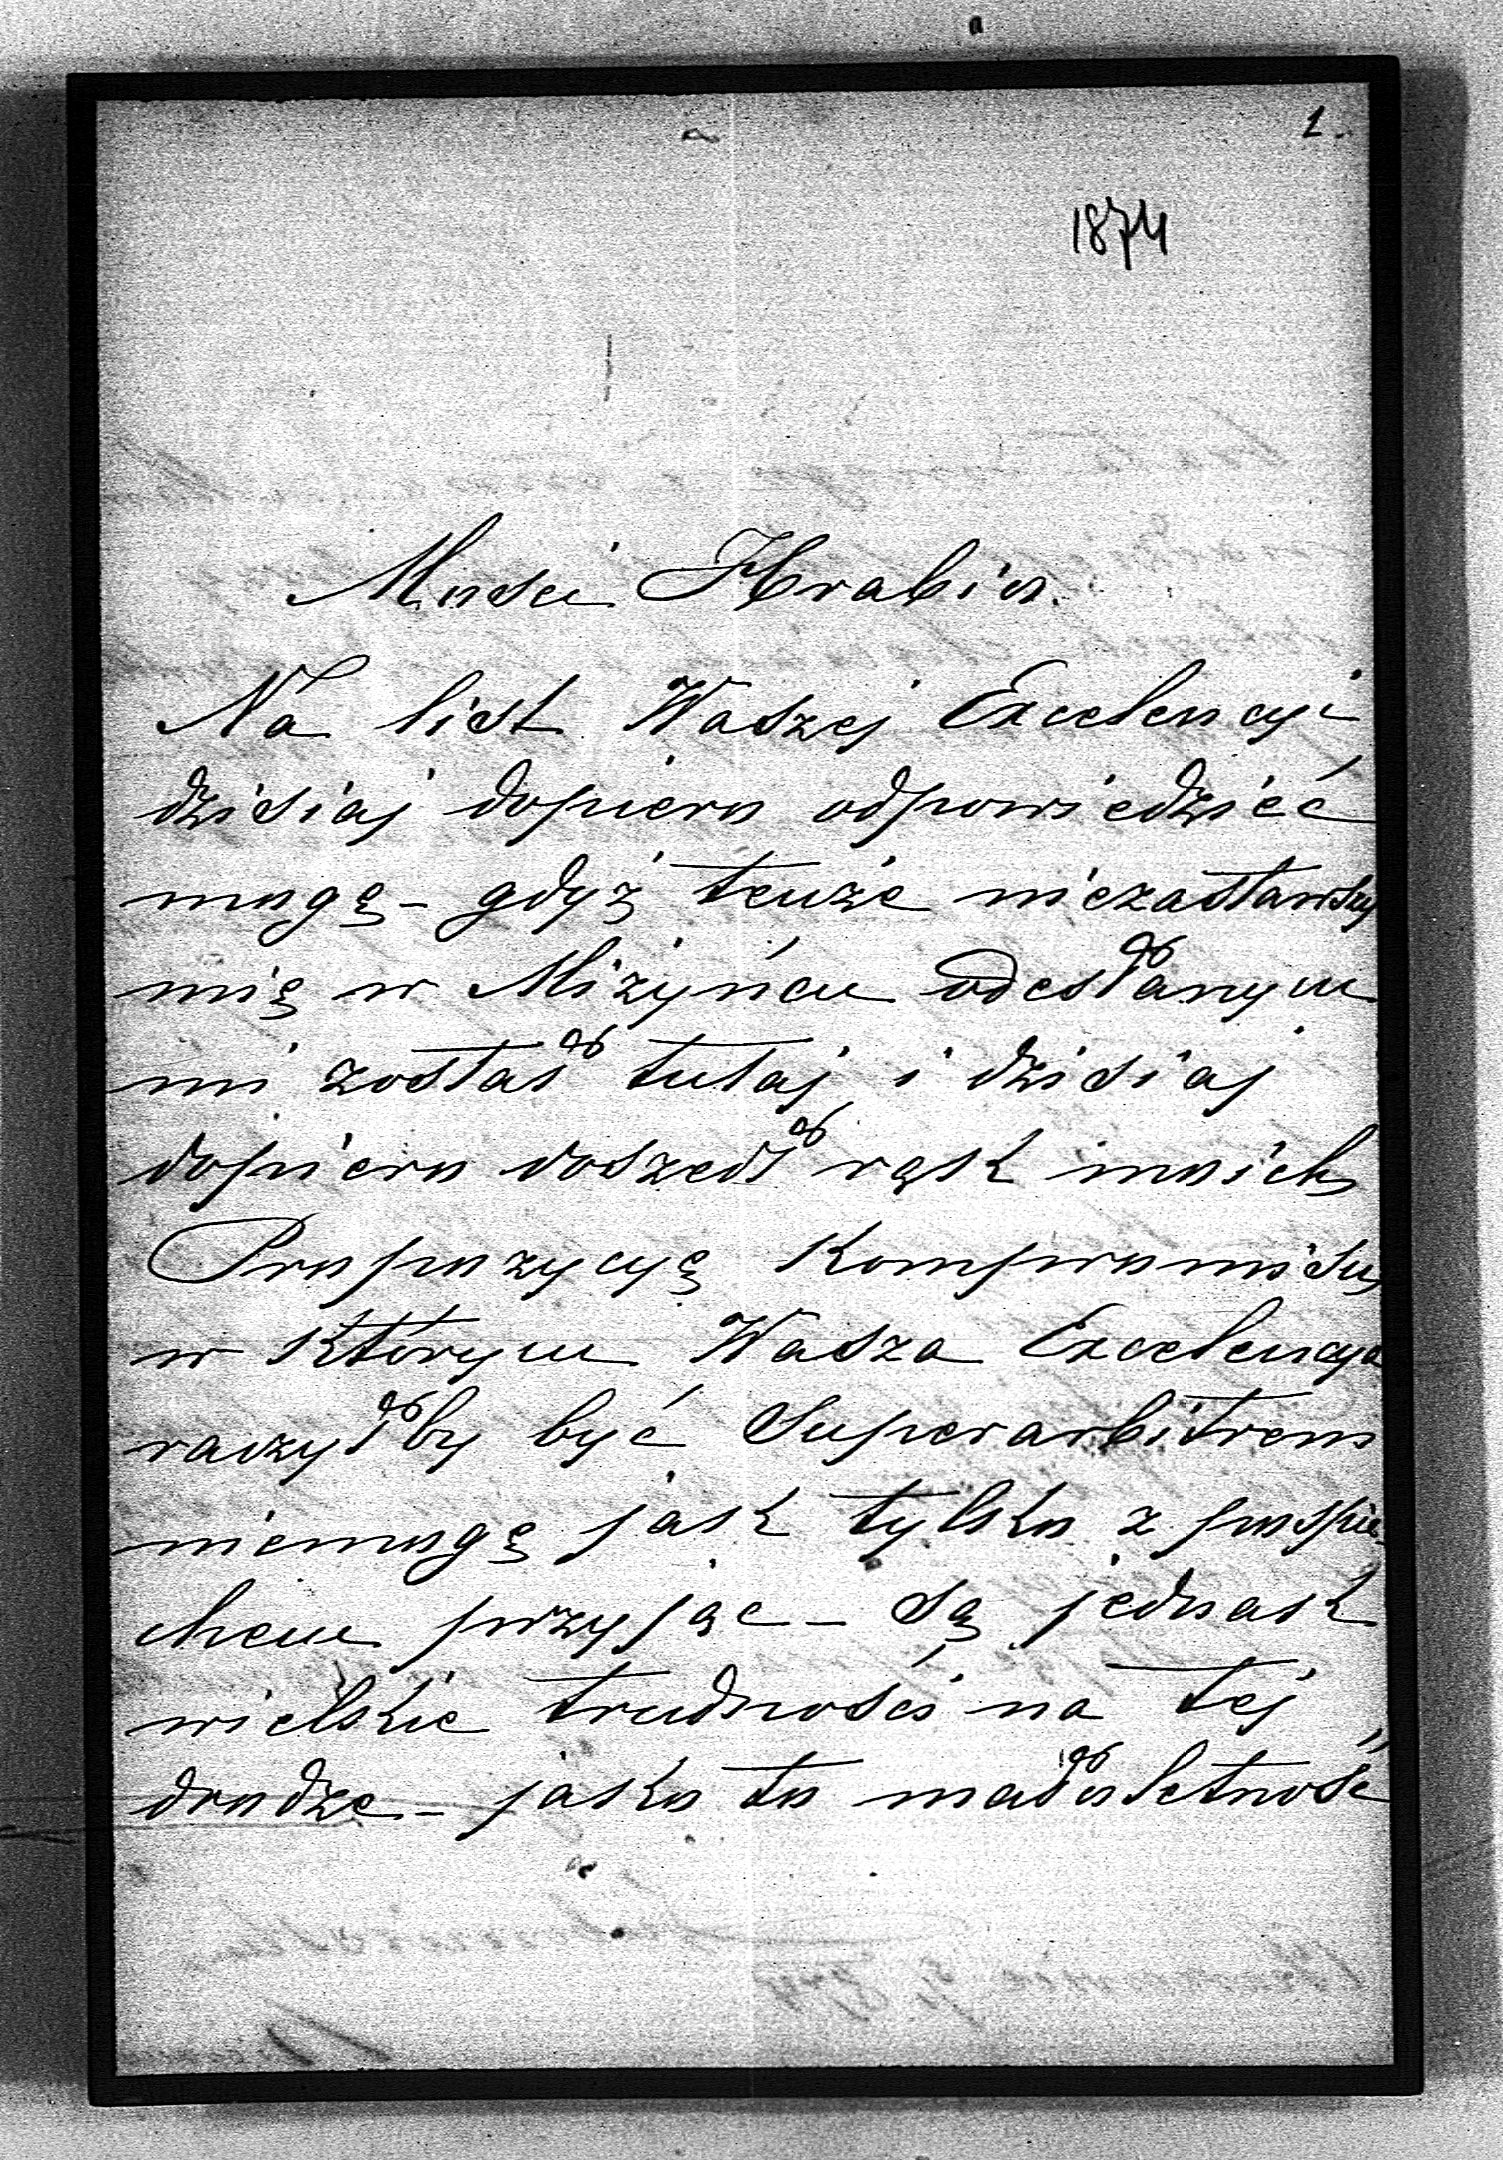 1.
1874
Mosci Hrabio.
Na list Waszej Excelencyi
dzisiaj dopiero odpowiedzieć
mogę - gdyż tenże niezastawszy
mię w Miżyńcu odesłanym
mi został tutaj i dzisiaj
dopiero doszedł rąk moich
Propozycyę kompromisu,
w którym Wasza Excelencya
raczyłby być Superarbitrem
niemogę jak tylko z pospie-
chem przyjąc - Są jednak
wielkie trudności na tej
drodze - jako to małoletność